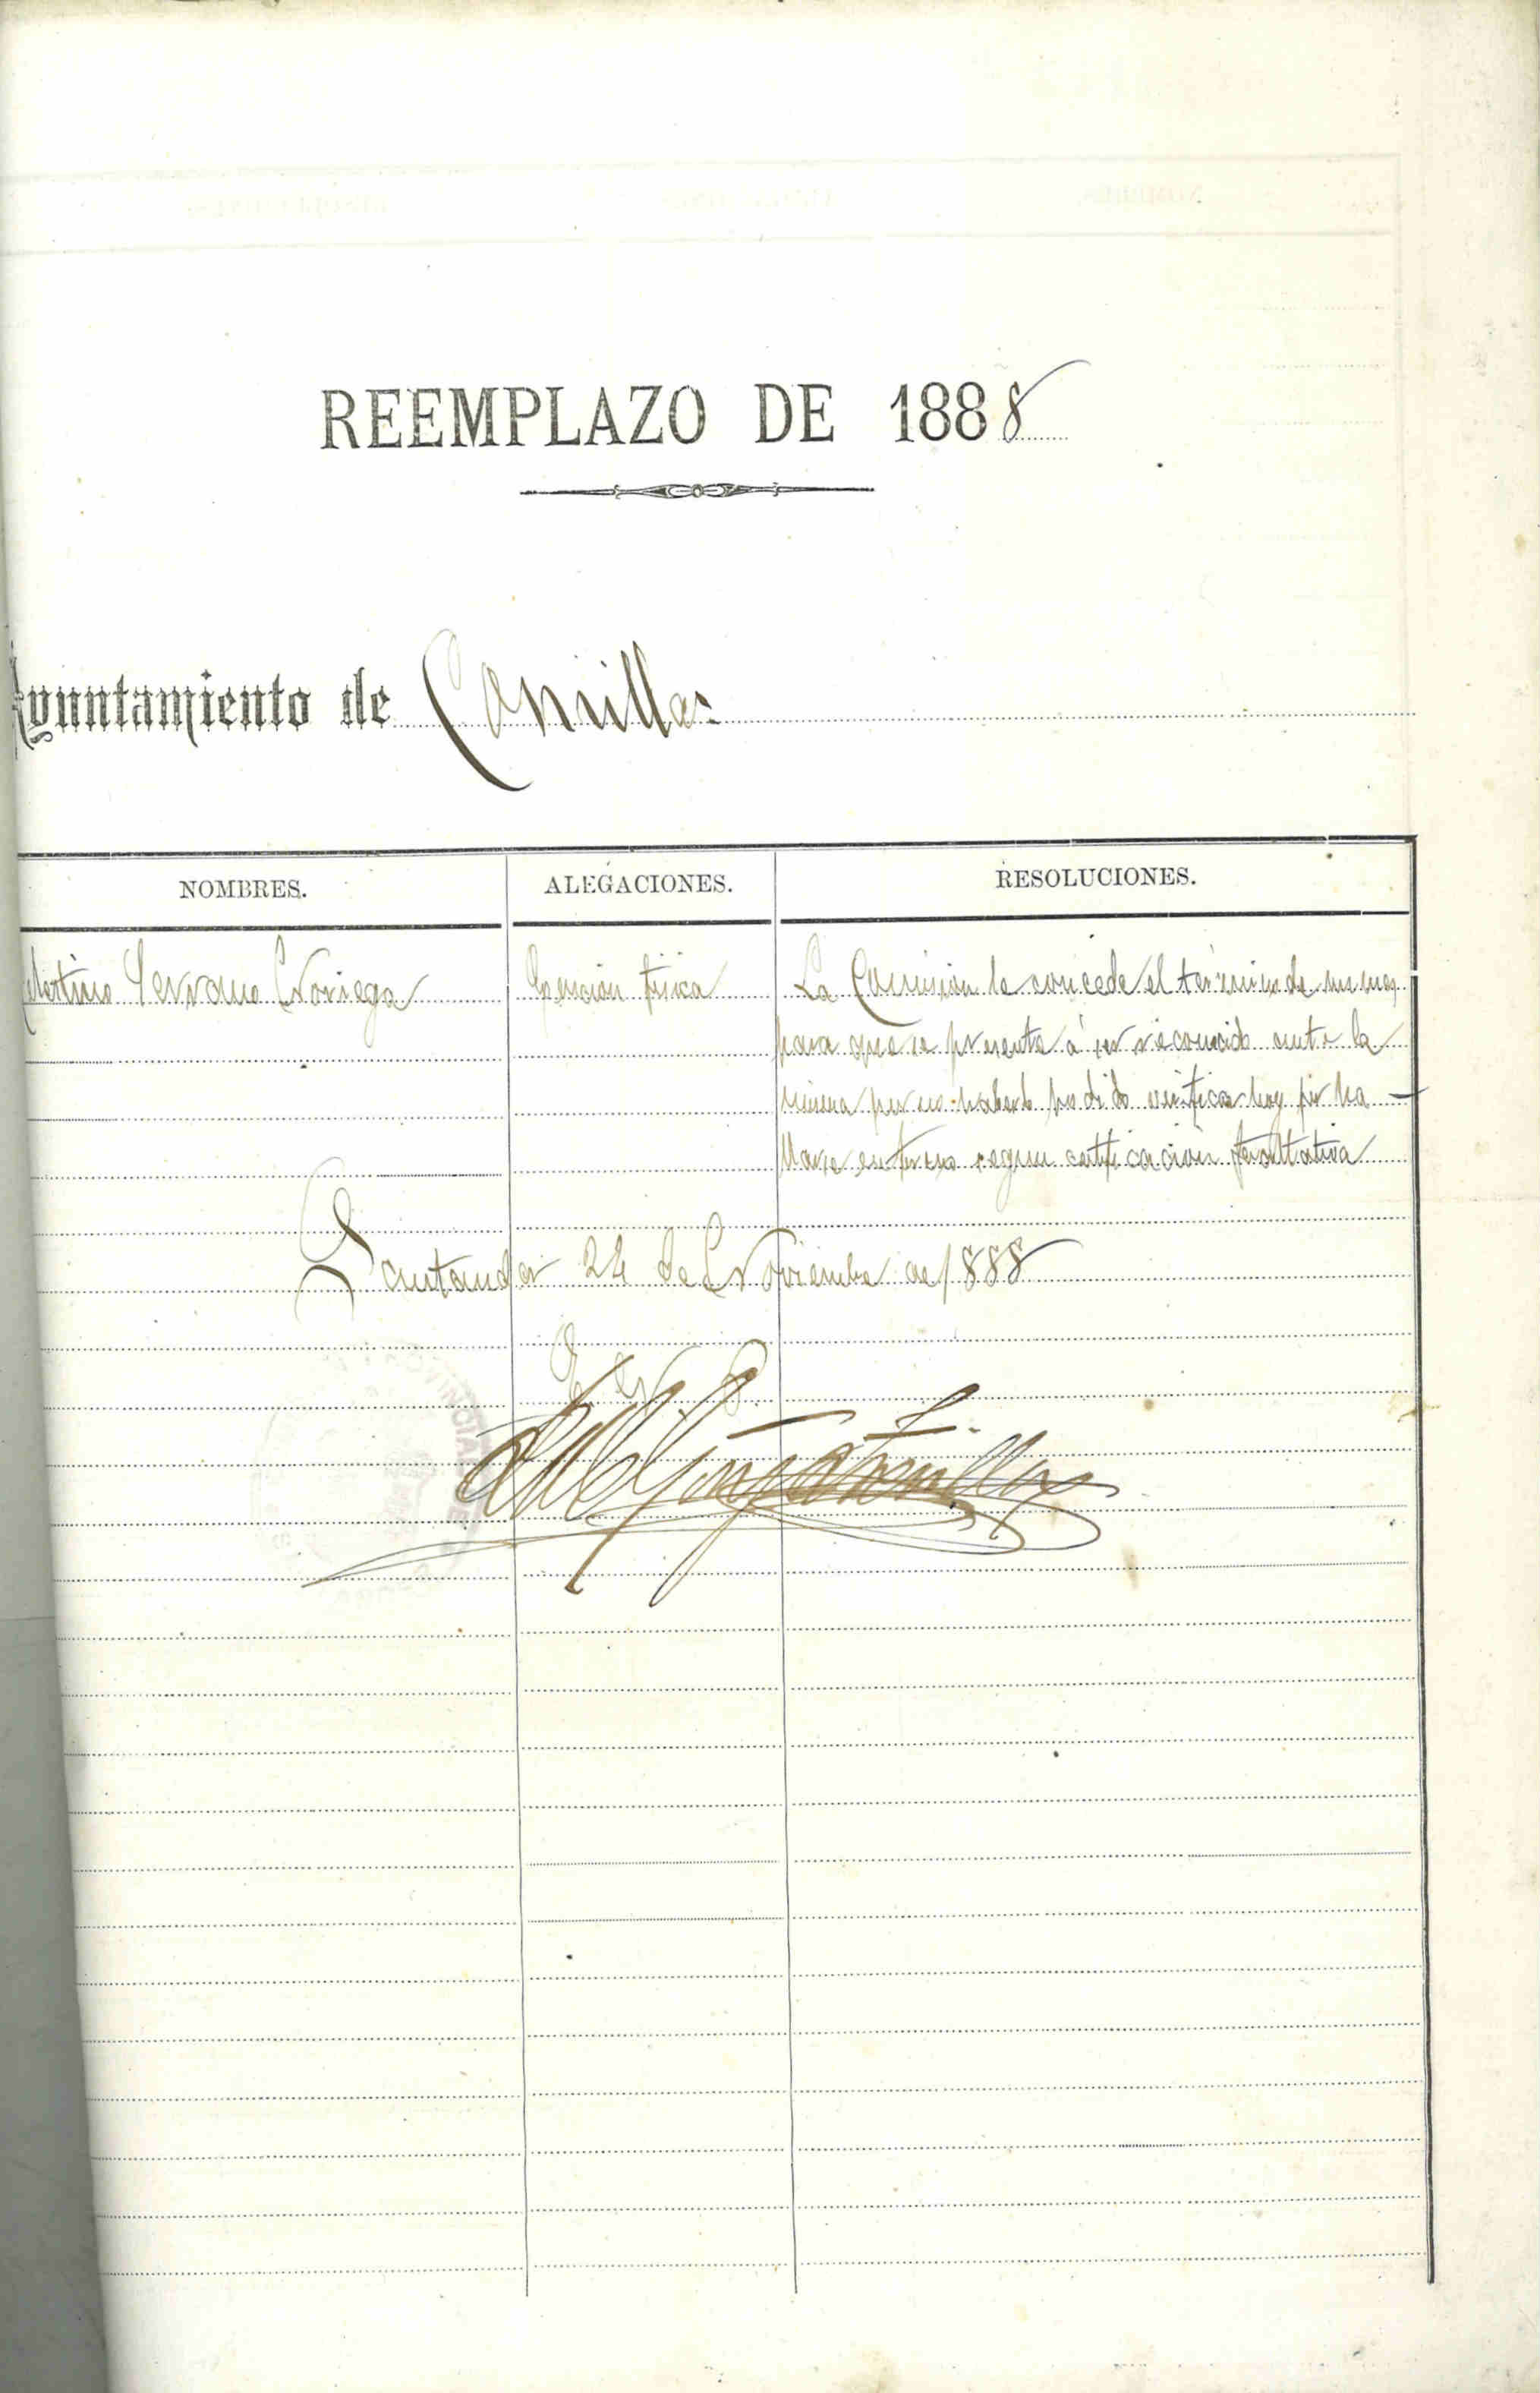 REEMPLAZO DE 1888
Ayuntamiento de Comillas
NOMBRES. ALEGACIONES. RESOLUCIONES.
Serrano Noriega Esencion física La Comisión le concede el término de un mes
para que se presente á ser reconocido ante la
misma por no haberlo podido verificar hoy por ha-
llarse enfermo segun certificacion facultativa
Santander 24 de Noviembre de 1888